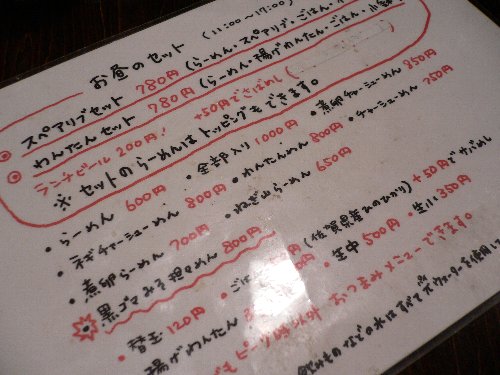 お昼のセット (11:00~17:00)
スペアリブセット 780円 (らーめん・スペアリブ・ごはん・
わんたんセット 780円 (らーめん・揚げわんたん・ごはん・小
ランチビール 200円! +50円でさばめし
※ セットのらーめんはトッピングもできます。
・らーめん 600円 ・全部入り 1000円 ・煮卵チャーシューめん 850円
・ネギチャーシューめん 800円 ・わんたんめん 800円 ・チャーシューめん 750円
・煮卵らーめん 700円 ・ねぎらーめん 650円
黒ゴマみそ担々めん 800円
・替玉 120円 ・ごはん (佐賀県産ひのひかり) +50円でサバめし
・揚げわんたん ・生中 500円 ・生小 350円
ピーク時以外 おつまみメニューできます。
飲みものなどの水はすべてπウォーターを使用